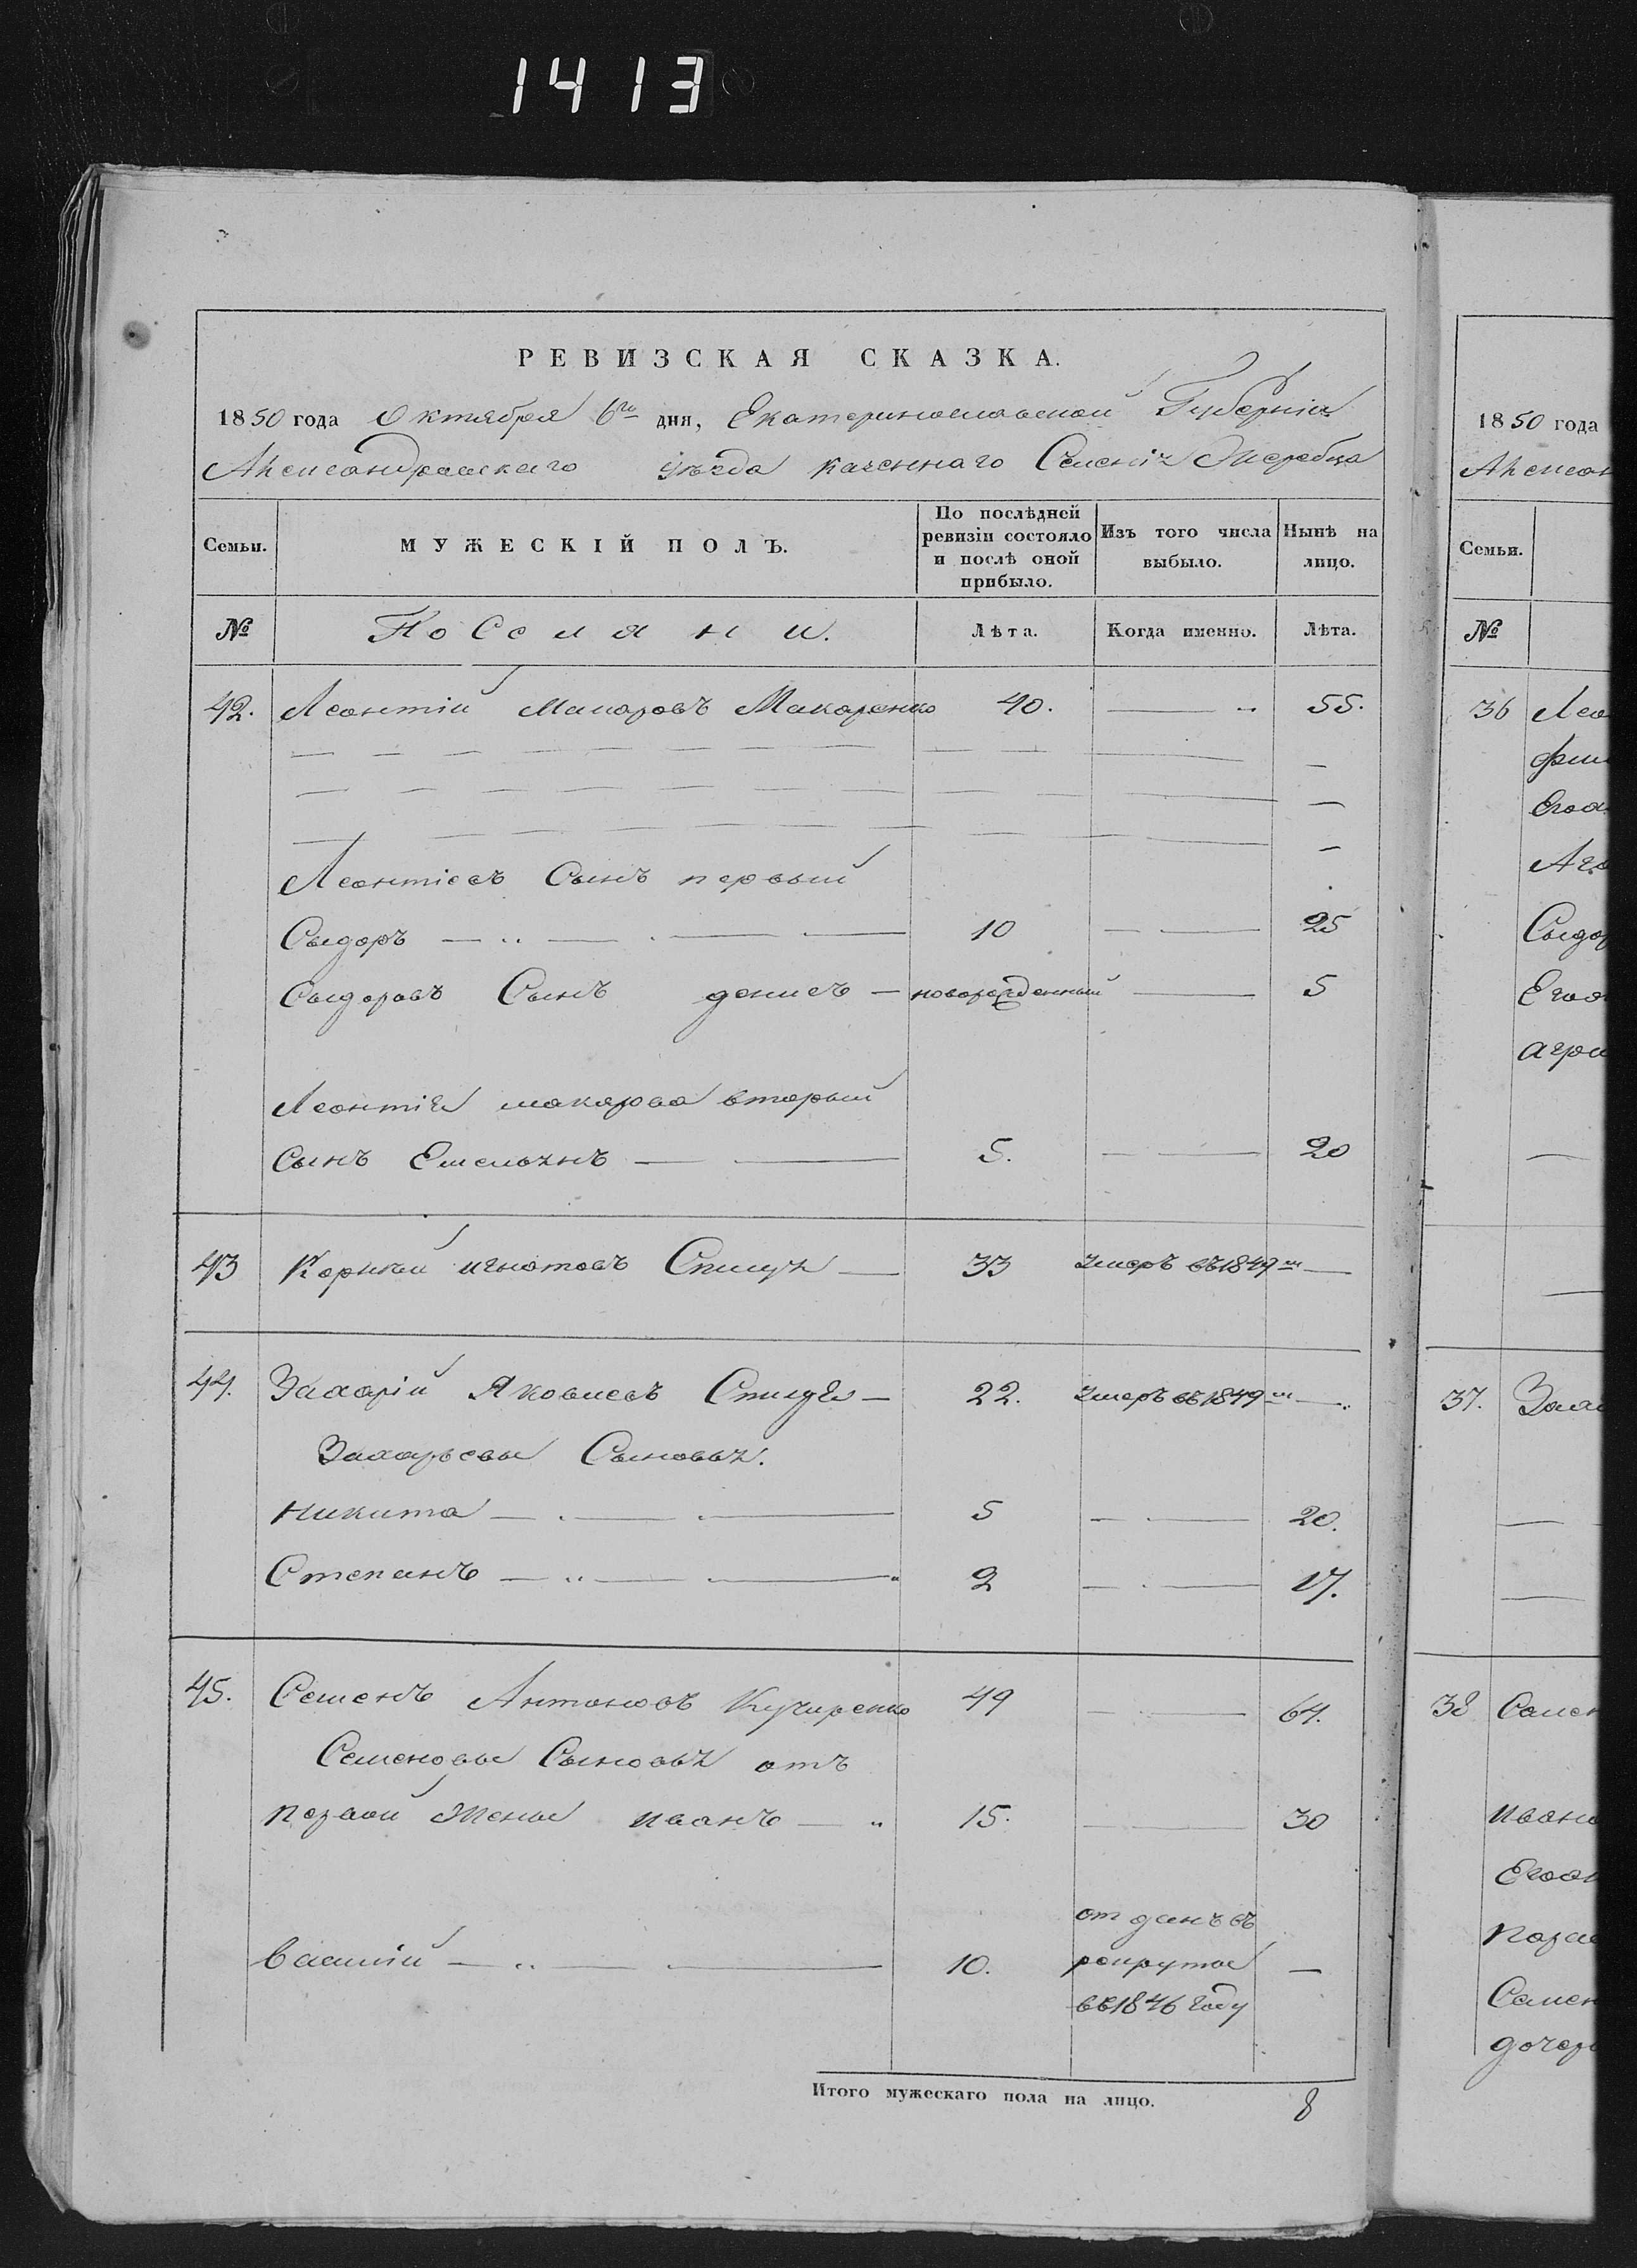 1413
РЕВИЗСКАЯ СКАЗКА.
1850 года Октября 6го дня, Екатеринославской Губерніи
Александровскаго уѣзда казеннаго Селенія Жеребца
Семьи. МУЖЕСКІЙ ПОЛЪ. По послѣдней ревизіи состояло и послѣ оной прибыло. Изъ того числа выбыло. Нынѣ на лицо.
№ Поселяни. Лѣта. Когда именно. Лѣта.
42. Леонтій Макаровъ Макаренко 40. 55.
Леонтіевъ Сынъ первый
Сыдоръ 10 25
Сыдоровъ Сынъ денисъ новорожденный 5
Леонтія макарова вторый
Сынъ Емельянъ 5. 20
43 Корнѣй игнатовъ 33 умеръ въ 1849м
44. Захарій Яковлевъ 22. умеръ въ 1849м
Захарьевы Сыновья.
Никита 5 20.
Степанъ 2 17.
45. Семенъ Антоновъ Кучиренко 49 64.
Семеновы Сыновья отъ
первой жены иванъ 15. 30
василій 10. отданъ въ
рекруты
въ 1846 году
Итого мужескаго пола на лицо. 8
1850 года
Семьи.
№
36
37.
38